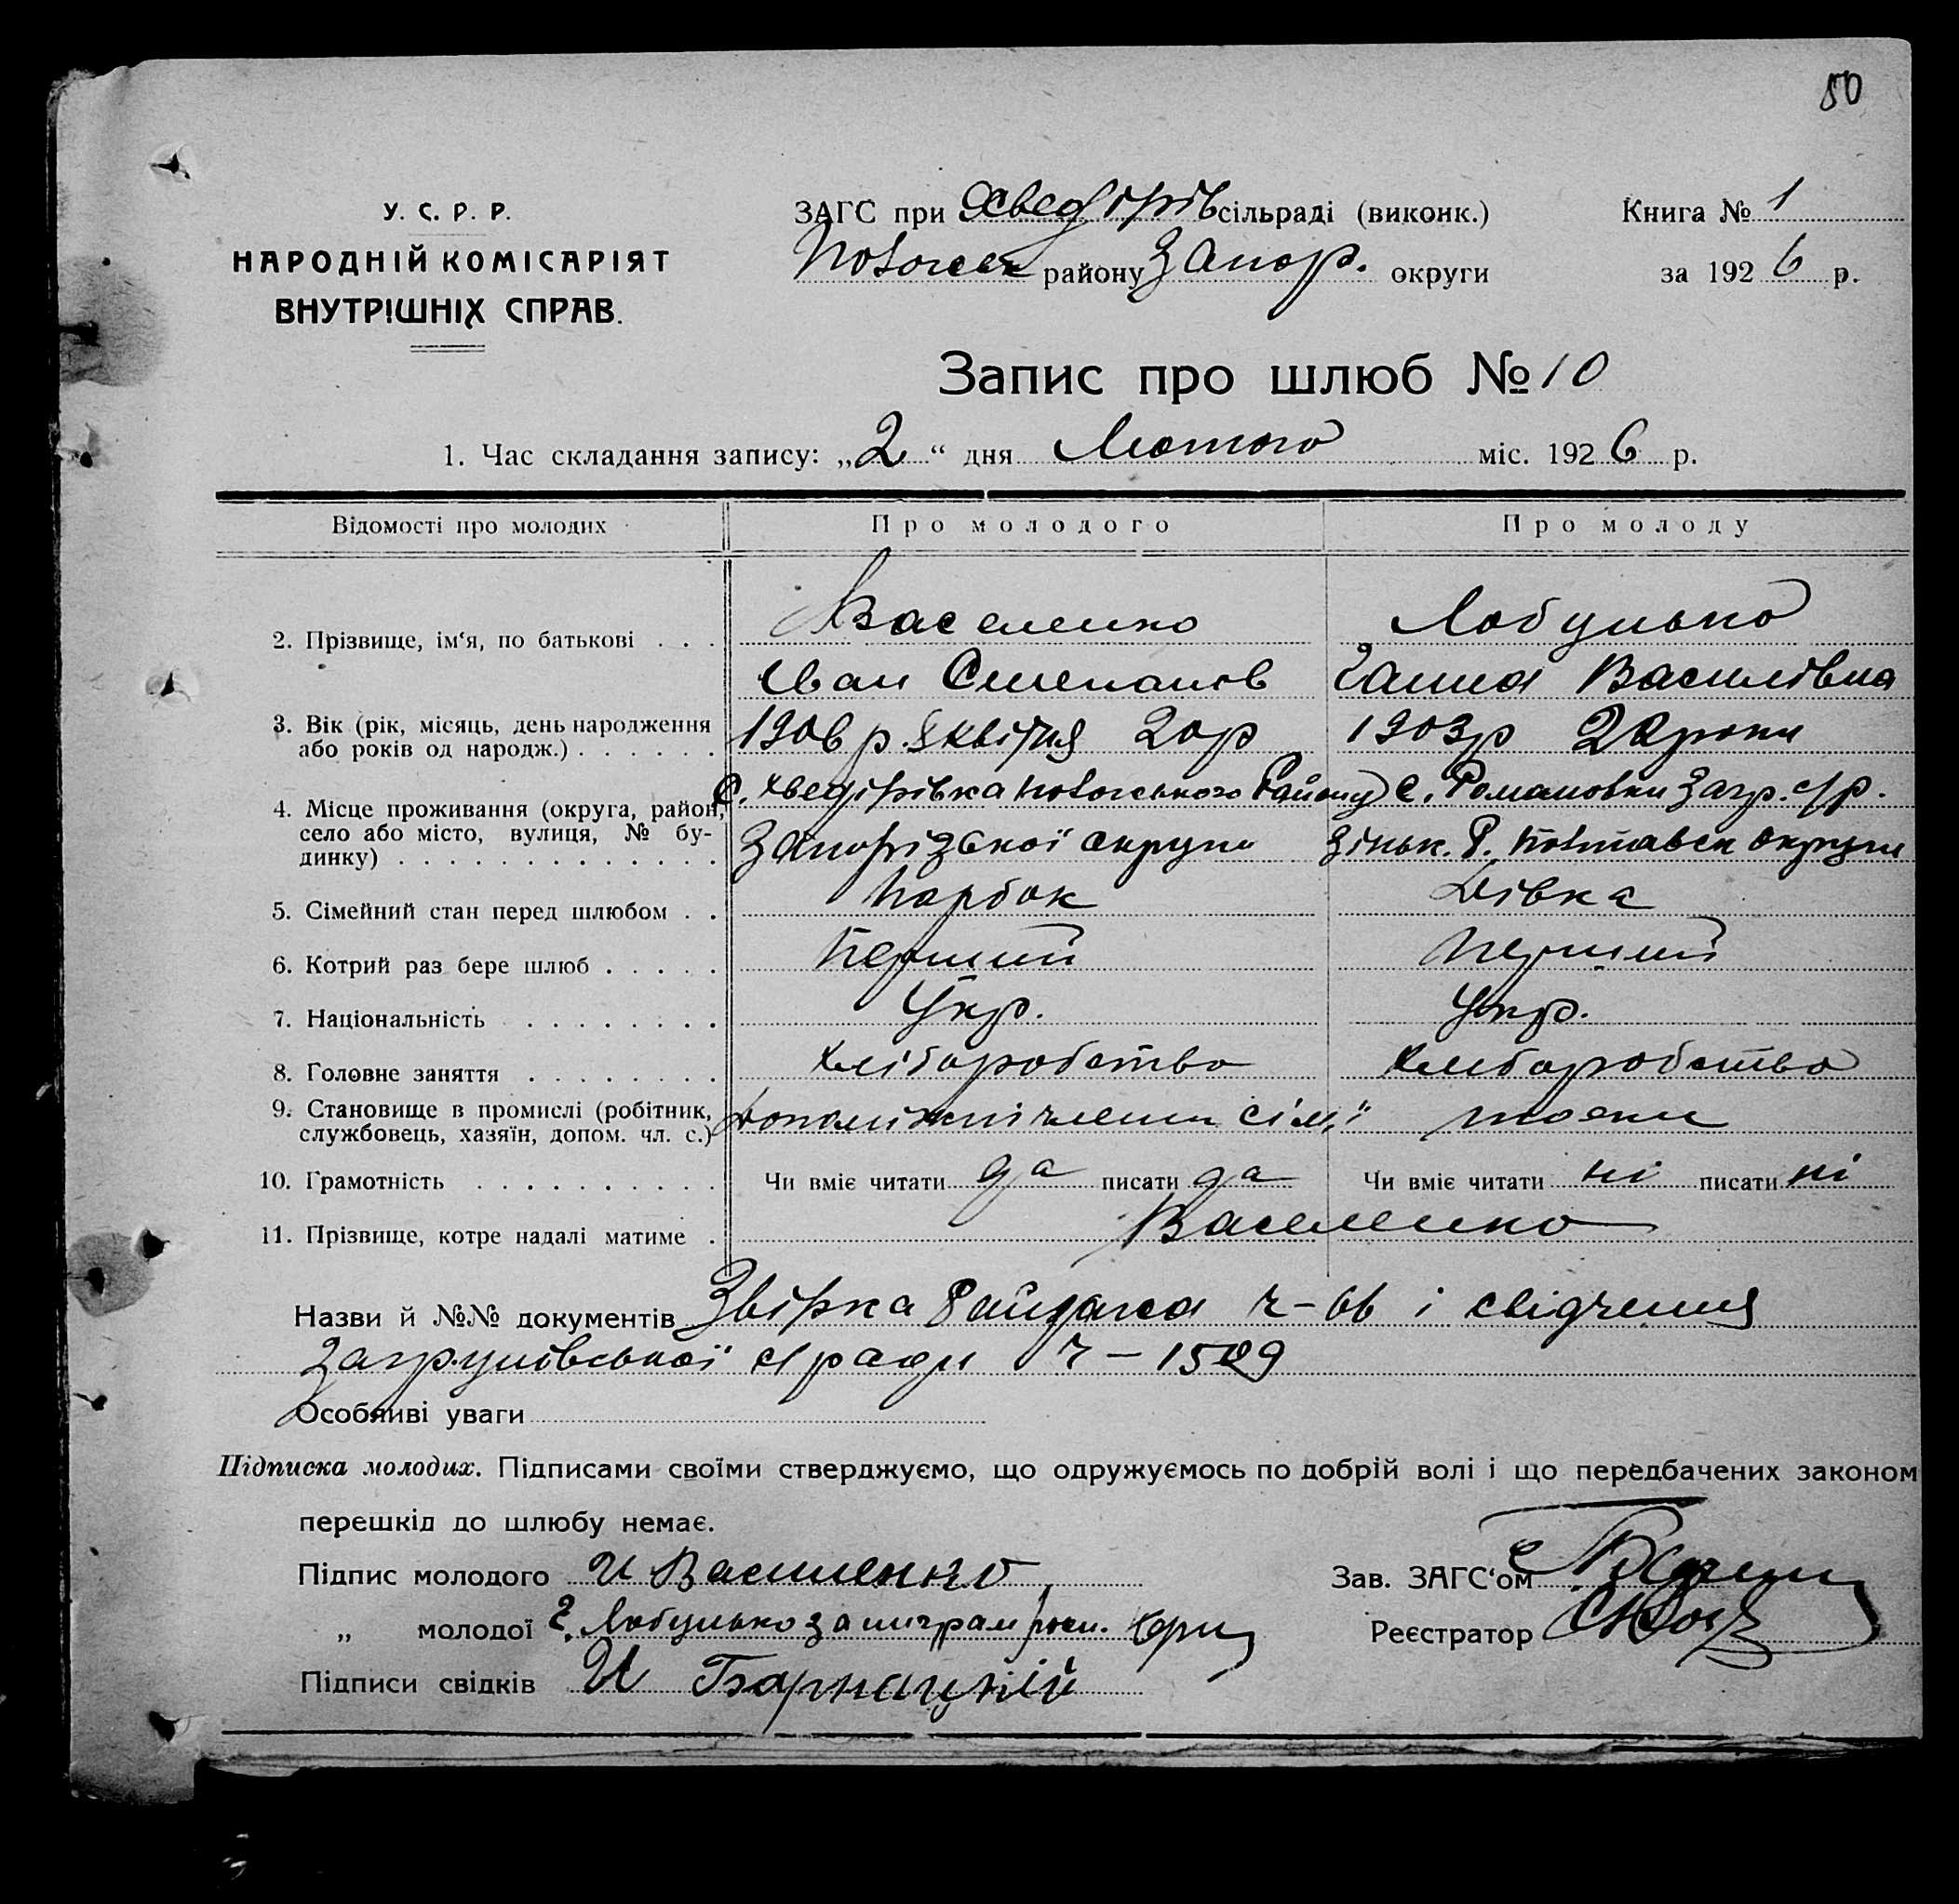 50
У. С. Р. Р.
НАРОДНІЙ КОМІСАРІЯТ
ВНУТРІШНІХ СПРАВ.
ЗАГС при Хведорів сільраді (виконк.)
району Запор. округи
Книга № 1
за 1926 р.
Запис про шлюб № 10
1. Час складання запису: „2“ дня Лютого міс. 1926 р.
Відомості про молодих Про молодого Про молоду
2. Прізвище, ім‘я, по батькові . . . Василенко Лобунько
Іван Степанов Ганна Василівна
3. Вік (рік, місяць, день народження
або років од народж.) . . . . . . 1906 р. 8 квітня 20 р 1903 р 22 роки
4. Місце проживання (округа, район,
село або місто, вулиця, № бу-
динку) . . . . . . . . . . . . .
С. Хведірівка Району С. Романовки Загр. с/р.
Запорізької округи Зіньк. Р. Полтавск округи
5. Сімейний стан перед шлюбом . . Парбок Дівка
6. Котрий раз бере шлюб . . . . . Перший Перший
7. Національність . . . . . . . . Укр. Укр.
8. Головне заняття . . . . . . . . хліборобство хлиборобство
9. Становище в промислі (робітник,
службовець, хазяїн, допом. чл. с.) сім'ї
10. Грамотність . . . . . . . . . . Чи вміє читати да писати да Чи вміє читати ні писати ні
11. Прізвище, котре надалі матиме . Василенко
Назви й №№ документів ч-66 і свідчення
ч-1509
Особливі уваги
Підписка молодих. Підписами своїми стверджуємо, що одружуємось по добрій волі і що передбачених законом
перешкід до шлюбу немає.
Підпис молодого И Василенко
Зав. ЗАГС‘ом
„ молодої Г. Лобунько за
Реєстратор
Підписи свідків И